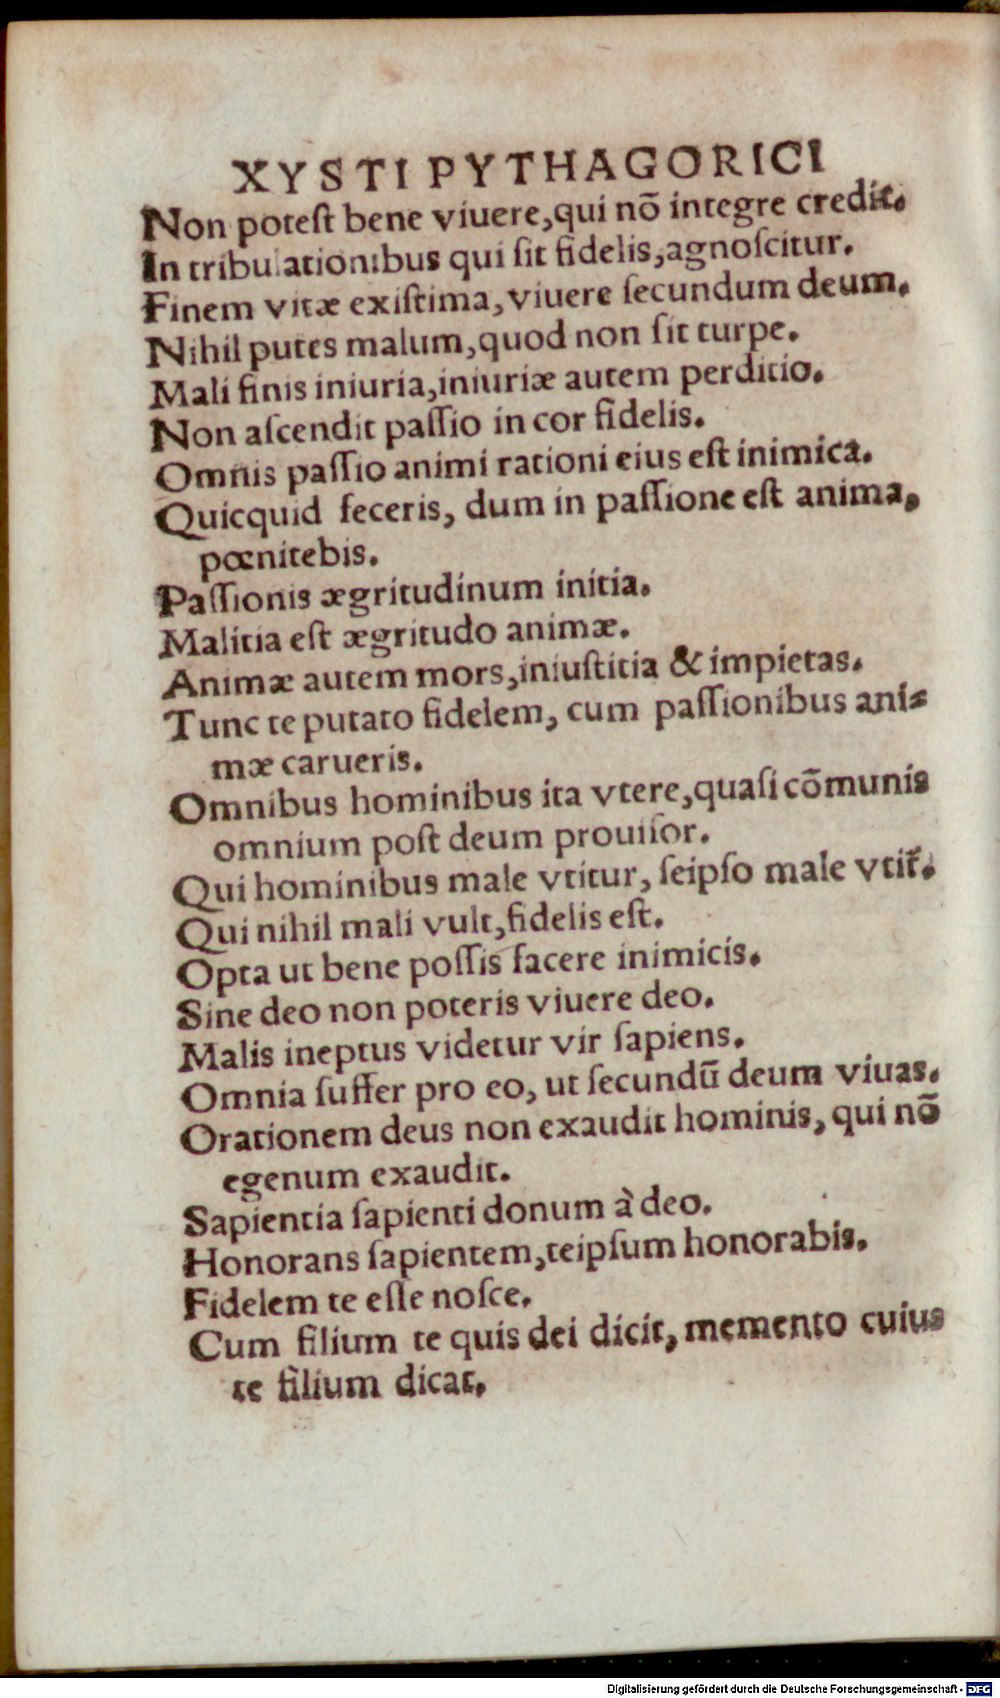 XYSTI PYTHAGORICI
Non poteſt bene viuere,qui nõ integre credit.
In tribulationibus qui ſit fidelis,agnoſcitur.
Finem vitæ exiſtima,viuere ſecundum deum.
Nihil putes malum,quod non ſit turpe.
Mali finis iniuria,iniuriæ autem perditio.
Non aſcendit paſſio in cor fidelis.
Omnis paſſio animi rationi eius eſt inimica.
Quicquid feceris, dum in paſſione eſt anima,
pœnitebis.
Paſſionis ægritudinum initia.
Malitia eſt ægritudo animæ.
Animæ autem mors,iniuſtitia & impietas.
Tunc te putato fidelem, cum paſſionibus ani⸗
mæ carueris.
Omnibus hominibus ita vtere,quaſi cõmunis
omnium poſt deum prouiſor.
Qui hominibus male vtitur, ſeipſo male vtit̃.
Qui nihil mali vult,fidelis eſt.
Opta ut bene poſſis facere inimicis.
Sine deo non poteris viuere deo.
Malis ineptus videtur vir ſapiens.
Omnia ſuffer pro eo, ut ſecundũ deum viuas.
Orationem deus non exaudit hominis, qui nõ
egenum exaudit.
Sapientia ſapienti donum à deo.
Honorans ſapientem,teipſum honorabis.
Fidelem te eſſe noſce.
Cum filium te quis dei dicit, memento cuius
te filium dicat.
Digitalisierung gefördert durch die Deutsche Forschungsgemeinschaft - DFG